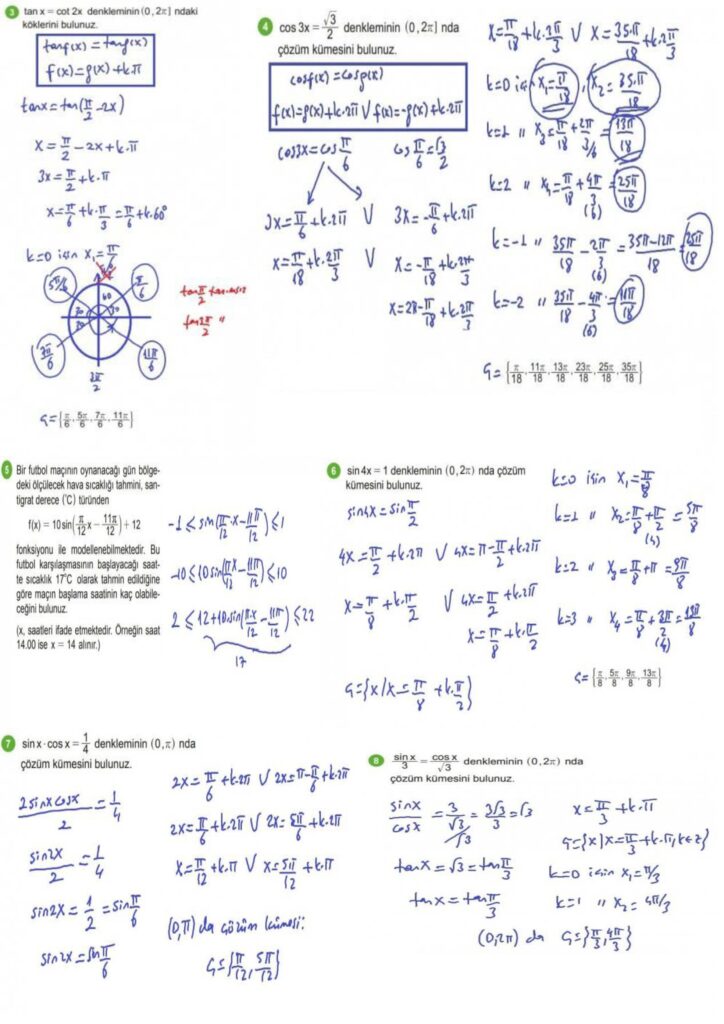 3 tan x = cot 2x denkleminin (0, 2π] ndaki
köklerini bulunuz.
tanf(x) = tang(x)
f(x) = g(x) + k.π
tanx = tan(π/2 - 2x)
x = π/2 - 2x + k.π
3x = π/2 + k.π
x = π/6 + k.π/3 = π/6 + k.60°
k=0 için x₁ = π/6
5π/6
π/6
60
30
30
30
11π/6
3π/2
tan π/2 tanımsız
tan 3π/2 "
Ç = {π/6, 5π/6, 7π/6, 11π/6}
4 cos 3x = √3/2 denkleminin (0, 2π] nda
çözüm kümesini bulunuz.
cosf(x) = cosg(x)
f(x) = g(x) + k.2π V f(x) = -g(x) + k.2π
cos3x = cos π/6 cos π/6 = √3/2
3x = π/6 + k.2π V 3x = -π/6 + k.2π
x = π/18 + k.2π/3 V x = -π/18 + k.2π/3
x = 2π - π/18 + k.2π/3
x = π/18 + k.2π/3 V x = 35π/18 + k.2π/3
k=0 için x₁ = π/18, x₂ = 35π/18
k=1 " x₃ = π/18 + 2π/3 = 13π/18
(6)
k=2 " x₄ = π/18 + 4π/3 = 25π/18
(6)
k=-1 " 35π/18 - 2π/3 = 35π-12π/18 =
(6)
k=-2 " 35π/18 - 4π/3 = 11π/18
(6)
Ç = {π/18, 11π/18, 13π/18, 23π/18, 25π/18, 35π/18}
5 Bir futbol maçının oynanacağı gün bölge-
deki ölçülecek hava sıcaklığı tahmini, san-
tigrat derece (°C) türünden
f(x) = 10sin(π/12 x - 11π/12) + 12
fonksiyonu ile modellenebilmektedir. Bu
futbol karşılaşmasının başlayacağı saat-
te sıcaklık 17°C olarak tahmin edildiğine
göre maçın başlama saatinin kaç olabile-
ceğini bulunuz.
(x, saatleri ifade etmektedir. Örneğin saat
14.00 ise x = 14 alınır.)
-1 ≤ sin(π/12 x - 11π/12) ≤ 1
-10 ≤ 10sin(π/12 x - 11π/12) ≤ 10
2 ≤ 12+10.sin(πx/12 - 11π/12) ≤ 22
17
6 sin 4x = 1 denkleminin (0, 2π) nda çözüm
kümesini bulunuz.
sin4x = sin π/2
4x = π/2 + k.2π V 4x = π - π/2 + k.2π
x = π/8 + k.π/2 V 4x = π/2 + k.2π
x = π/8 + k.π/2
Ç = {x / x = π/8 + k.π/2}
k=0 için x₁ = π/8
k=1 " x₂ = π/8 + π/2 = 5π/8
(4)
k=2 " x₃ = π/8 + π = 9π/8
k=3 " x₄ = π/8 + 3π/2 = 13π/8
(4)
Ç = {π/8, 5π/8, 9π/8, 13π/8}
7 sin x · cos x = 1/4 denkleminin (0, π) nda
çözüm kümesini bulunuz.
2sinx cosx/2 = 1/4
sin2x/2 = 1/4
sin2x = 1/2 = sin π/6
sin2x = sin π/6
2x = π/6 + k.2π V 2x = π - π/6 + k.2π
2x = π/6 + k.2π V 2x = 5π/6 + k.2π
x = π/12 + k.π V x = 5π/12 + k.π
(0,π) da çözüm kümesi:
Ç = {π/12, 5π/12}
8 sin x/3 = cos x/√3 denkleminin (0, 2π) nda
çözüm kümesini bulunuz.
sinx/cosx = 3/√3 = 3√3/3 = √3
/√3
tanx = √3 = tan π/3
tanx = tan π/3
x = π/3 + k.π
Ç = {x | x = π/3 + k.π, k∈Z}
k=0 için x₁ = π/3
k=1 " x₂ = 4π/3
(0,2π) da Ç = {π/3, 4π/3}